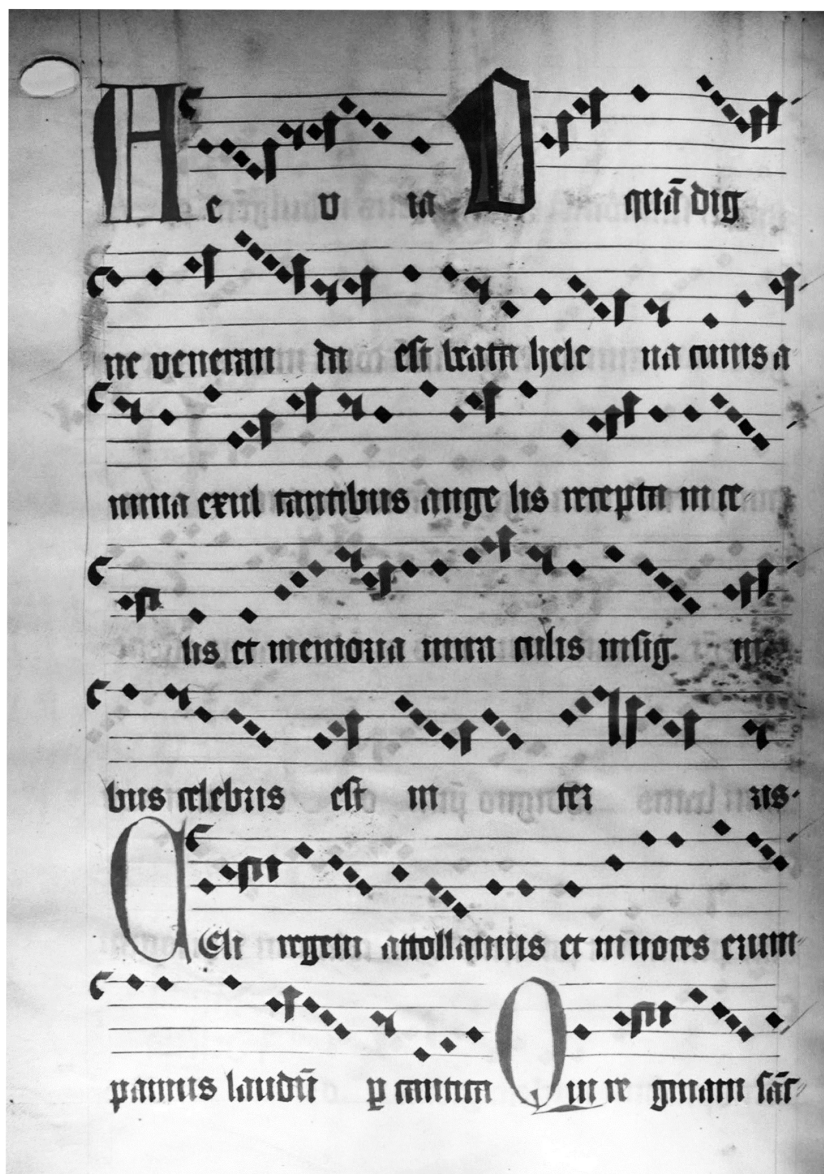 Ae v ia O quā dig
ne veneran da est beata hele na cum sa
nima exul tantibus ange lis recepta in ce
lis et memoria mira culis insig ni
bus celebris est in ter ris.
Celi regem attollamus et minores erum
pamus laudū p cantica Qui re ginam sāc